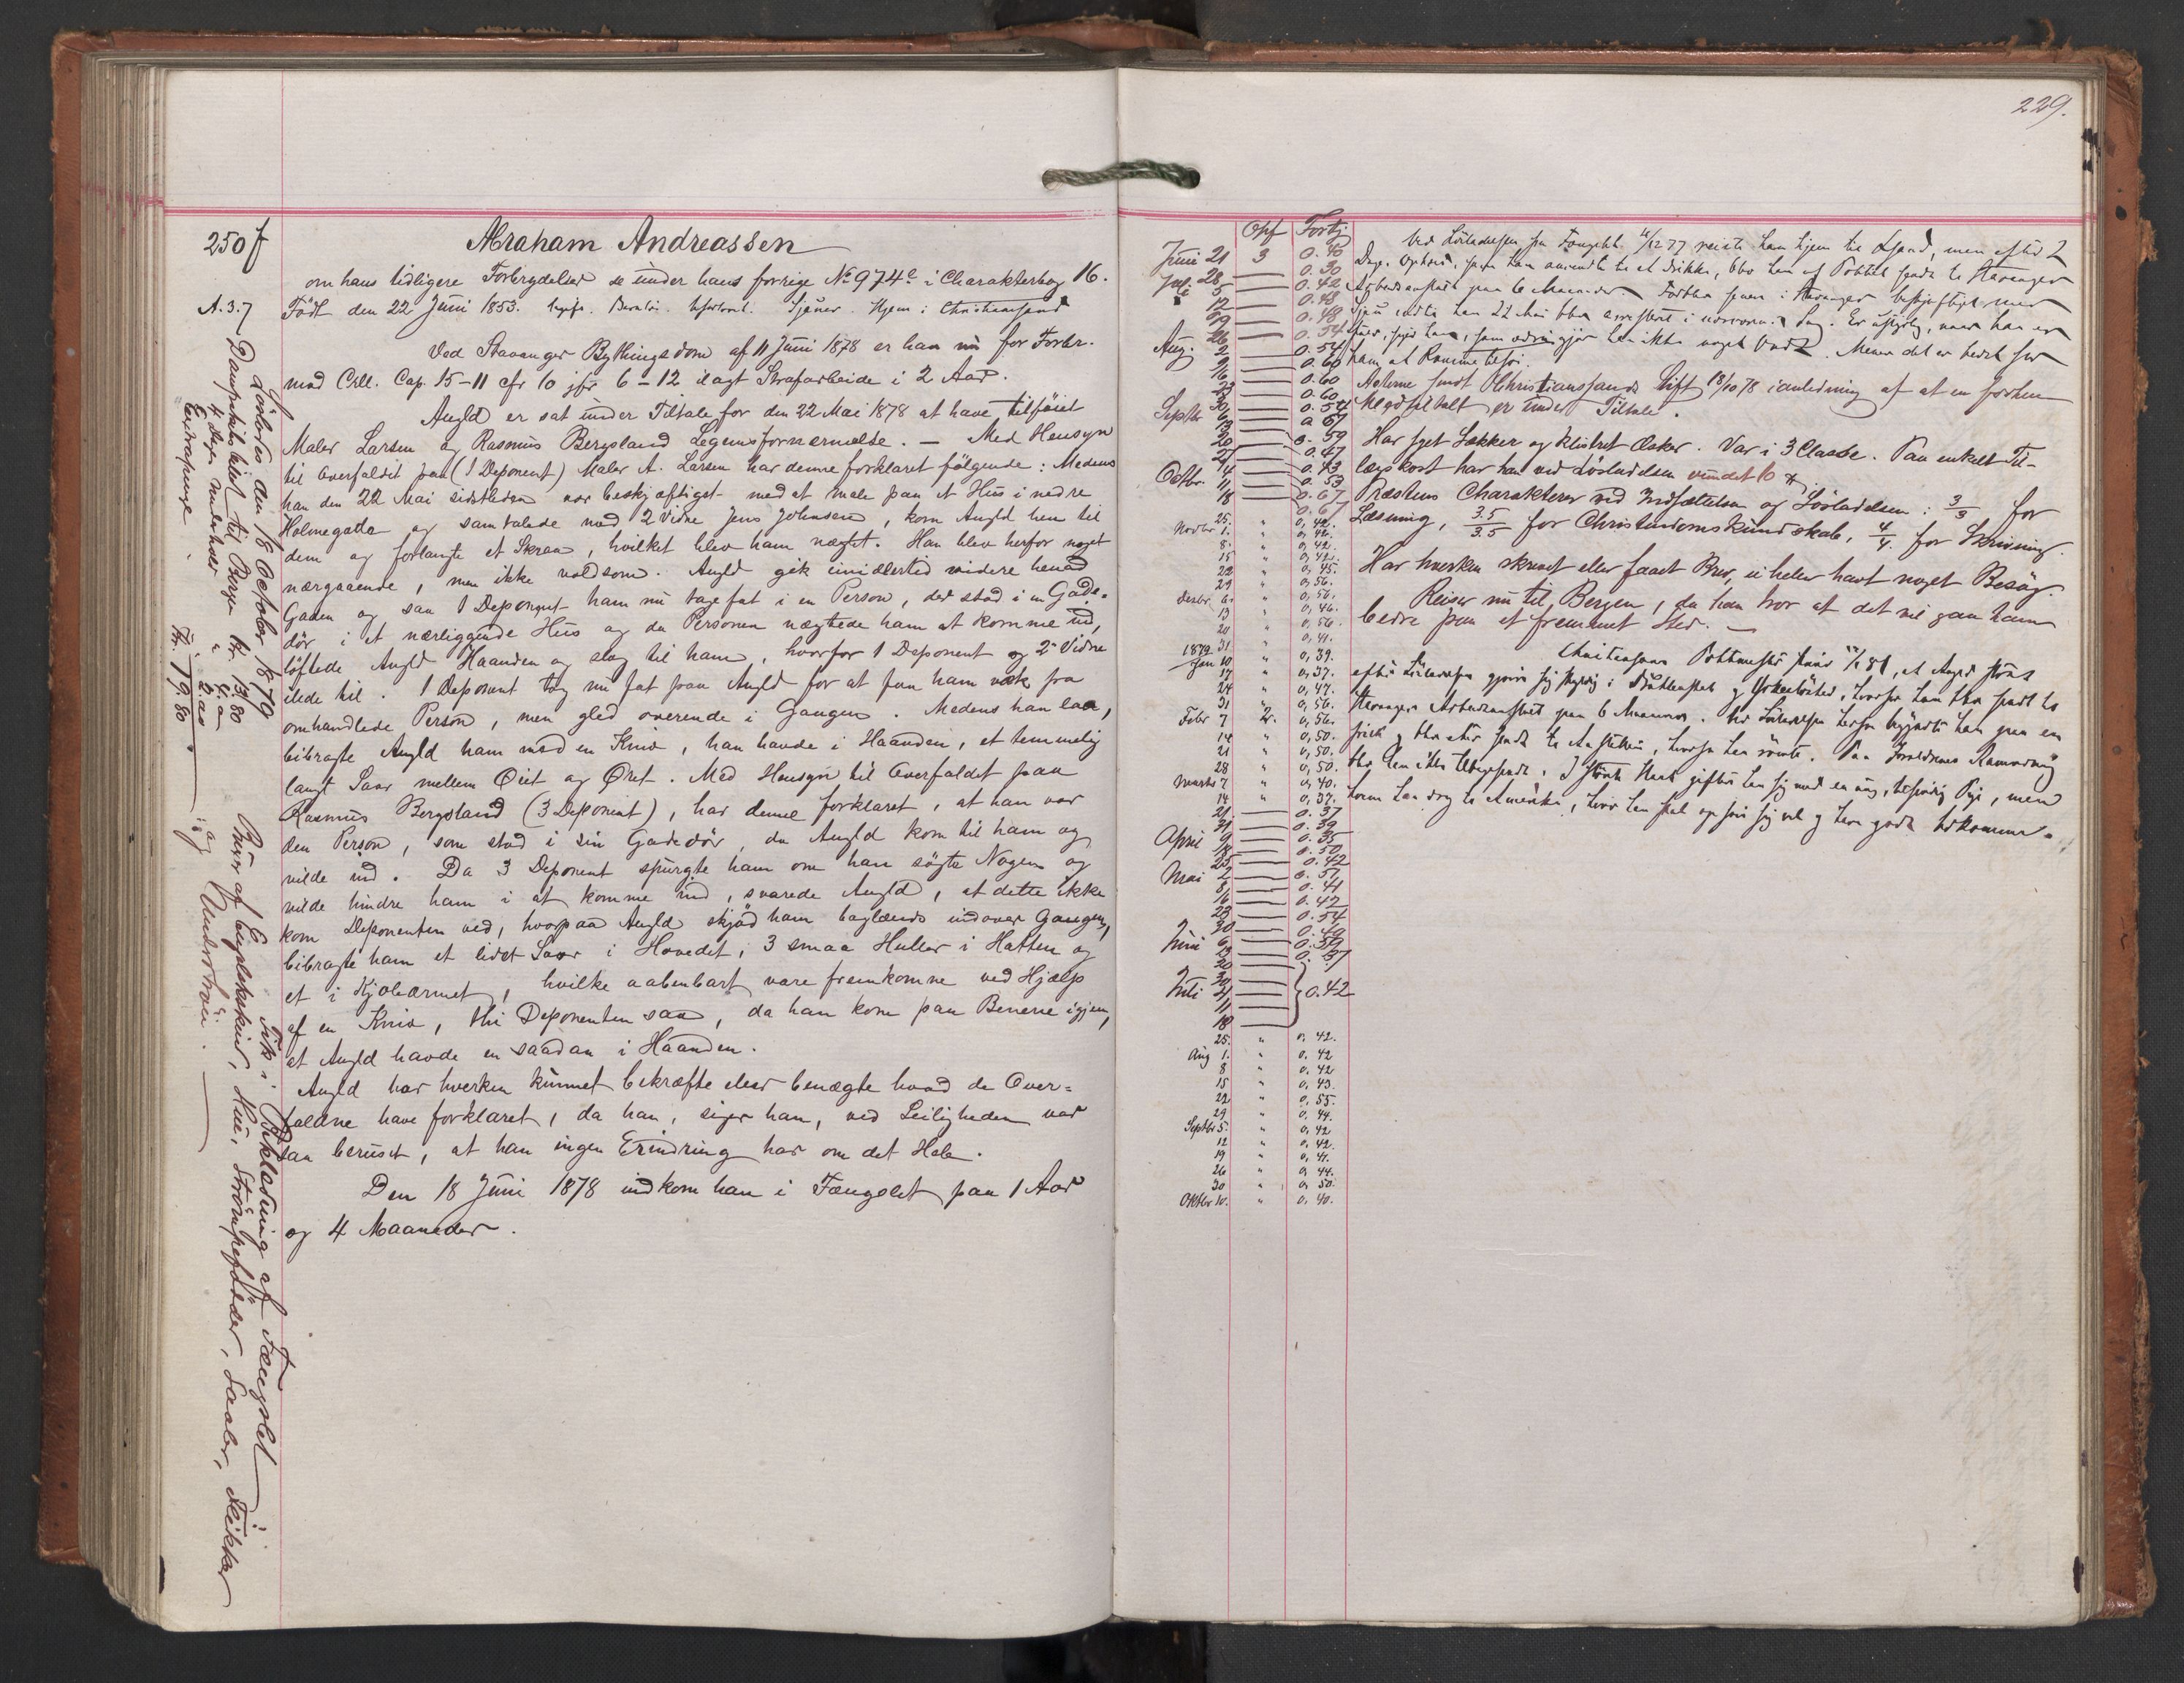 250 f
Abraham Andreassen
om hans tidligere Forbrydelser se under hans forrige No 974e i Charakterbog 16.
A. 3. 7
Født den 22 Juni 1853. Sjauer. Hjem i Christianssand
Ved Stavanger Bythingsdom af 11 Juni 1878 er han nu for Forbr.
mod Crll. Cap. 15-11 cfr 10 jfr 6-12 ilagt Strafarbeide i 2 Aar.
Angld er sat under Tiltale for den 22 Mai 1878 at have tilføiet
Maler Larsen og Rasmus Bergsland Legemsfornærmelse. – Med Hensyn
til Overfaldet paa (1 Deponent) Maler A. Larsen har denne forklaret følgende: Medens
han den 22 Mai sidstleden var beskjæftiget med at male paa et Hus i nedre
Holmegatta og samtalede med 2 Vidne Jens Johnsen, kom Angld hen til
dem og forlangte et Skraa, hvilket blev ham nægtet. Han blev herfor noget
nærgaaende, men ikke voldsom. Angld gik imidlertid videre henad
Gaden og saa 1 Deponent ham nu tage fat i en Person, der stod i en Gade-
dør i et nærliggende Hus og da Personen nægtede ham at komme ind,
løftede Angld Haanden og slog til ham, hvorfor 1 Deponent og 2 Vidne
ilede til. 1 Deponent tog nu fat paa Angld for at faa ham væk fra
omhandlede Person, men gled overende i Gangen. Medens han laa,
bibragte Angld ham med en Kniv, han havde i Haanden, et temmelig
langt Saar mellem Øiet og Øret. Med Hensyn til Overfaldet paa
Rasmus Bergsland (3 Deponent), har denne forklaret, at han var
den Person, som stod i sin Gadedør, da Angld kom til ham og
vilde ind. Da 3 Deponent spurgte ham om han søgte Nogen og
vilde hindre ham i at komme ind, svarede Angld, at dette ikke
kom Deponenten ved, hvorpaa Angld skjød ham baglænds indover Gangen,
bibragte ham et lidet Saar i Hovedet, 3 smaa Huller i Hatten og
et i Kjoleærmet, hvilke aabenbart vare fremkomne ved Hjælp
af en Kniv, thi Deponenten saa, da han kom paa Benene igjen,
at Angld havde en saadan i Haanden.
Angld har hverken kunnet bekræfte eller benægte hvad de Over=
faldne have forklaret, da han, siger han, ved Leiligheden var
saa beruset, at han ingen Erindring har om det Hele.
Den 18 Juni 1878 indkom han i Fængslet paa 1 Aar
og 4 Maaneder.
Løslodes den 18 October 1879
Dampskibsbillet til Bergen Kr. 13,80
4 Dages Underhold
Extrapenge
Kr. 19,80
Fik i Beklædning af Fængslet:
Buxer af Engelskskind, Hue, Strømpefødder, Saaler, Flikker
og Undertrøie.
229.
Opf Fortj
Juni 21 3 0.40
28 — 0.30
Juli 5 — 0.42
12 — 0.48
19 — 0.48
26 — 0.54
Aug. 2 — 0.54
9 — 0.60
16 — 0.60
23 — 0.60
30 — 0.54
Septbr 6 — 0.67
13
20 — 0.59
27 — 0.47
Octbr. 4 — 0.43
11 — 0.53
18 — 0.67
25. " 0,42.
Novbr 1. " 0,42.
8. " 0,42.
15 " 0,42.
22 " 0,45.
29 " 0,56.
Decbr 6. " 0,56.
13 " 0,46.
20 " 0,56.
1879 31 " 0,41.
Jan 10 " 0,39.
17 " 0,37.
24 " 0,47.
31 " 0,56.
Febr 7 2. 0,56.
14 " 0,50.
21 " 0,50.
28 " 0,50.
Marts 7 " 0,40.
14 " 0,37.
21 — 0.37
31 — 0.39
April 9 — 0.35
18 — 0.50
25 — 0.42
Mai 2 — 0.51
8 — 0.41
16 — 0.42
23 — 0.54
30 — 0.40
Juni 6 — 0.59
13 — 0.37
20 —
30 —
Juli 4 — 0.42
11 —
18 —
25. " 0,42.
Aug 1. " 0,42
8 " 0,42
15 " 0,43.
22 " 0,55.
29 " 0,44.
Septbr 5. " 0,42
12 " 0,42.
19 " 0,41.
26 " 0,44.
30 " 0,50.
Oktbr 10. " 0,40.
Ved Løsladelsen fra Fængslet reiste han hjem til Xsand, men efter 2
Dages Ophold, hvor han anvendte til at drikke, blev han af Politiet sendt til Stavanger
Arbeidsanstalt paa 6 Maaneder. Forblev senere i Stavanger beskjæftiget med
Sjau indtil han 22 Mai blev arresteret i nærværende Sag. Er ustyrlig, naar han er
fuld, siger han, som ædru gjør han ikke noget Ondt. Mener det er bedst for
ham at komme tilsøs.
Noterne sendt Christianssands Stift 18/10 78 i anledning af at en forhen
Medfiltalt er under Tiltale.
Har syet Sækker og klistret Æsker. Var i 3 Classe. Paa enkelt Til-
lægskost har han ved Løsladelsen vundet 10
Præstens Charakterer ved Indsættelsen og Løsladelsen: 3/3 for
Læsning, 3.5/3.5 for Christendomskundskab, 4/4 for Skrivning.
Har hverken skrevet eller faaet Brev, ei heller havt noget Besøg.
Reiser nu til Bergen, da han tror at det vil gaa ham
bedre paa et fremmet Sted. –
Christiansands Politimester skriver 81, at Angld strax
efter Løsladelsen gjorde sig skyldig i Drukkenskab og Ørkesløshed, hvorfor han blev sendt til
Stavangers Arbeidsanstalt paa 6 Maaneder. Ved Løsladelsen herfra begyndte han paa en
frisk og blev atter sendt til Anstalten, hvorfra han rømte. Paa Forældrenes Anmodning
blev han ikke tilbagesendt. I giftede han sig med en ung, Pige, men
han drog til Amerika, hvor han skal opføre sig vel og have godt Udkomme.